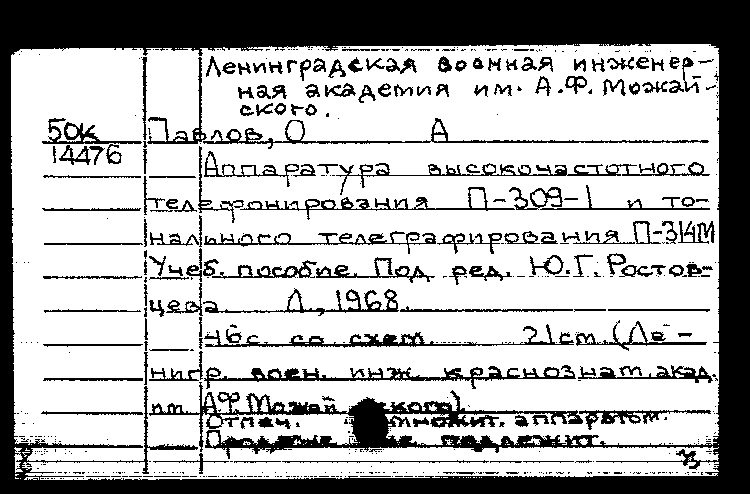 Ленинградская военная инженер-
ная академия им. А.Ф. Можай-
ского.
50к Павлов, О А
14476 Аппаратура высокочастотного
телефонирования П-309-1 и то-
нального телеграфирования П-314М
Учеб. пособие. Под ред. Ю.Г. Ростов-
цева. Л., 1968.
46с. со схем. 21см. (Ле-
нингр. воен. инж. краснознам. акад.
им. А.Ф. Можайского).
Отпеч. множит. аппаратом.
Продаже не подлежит.